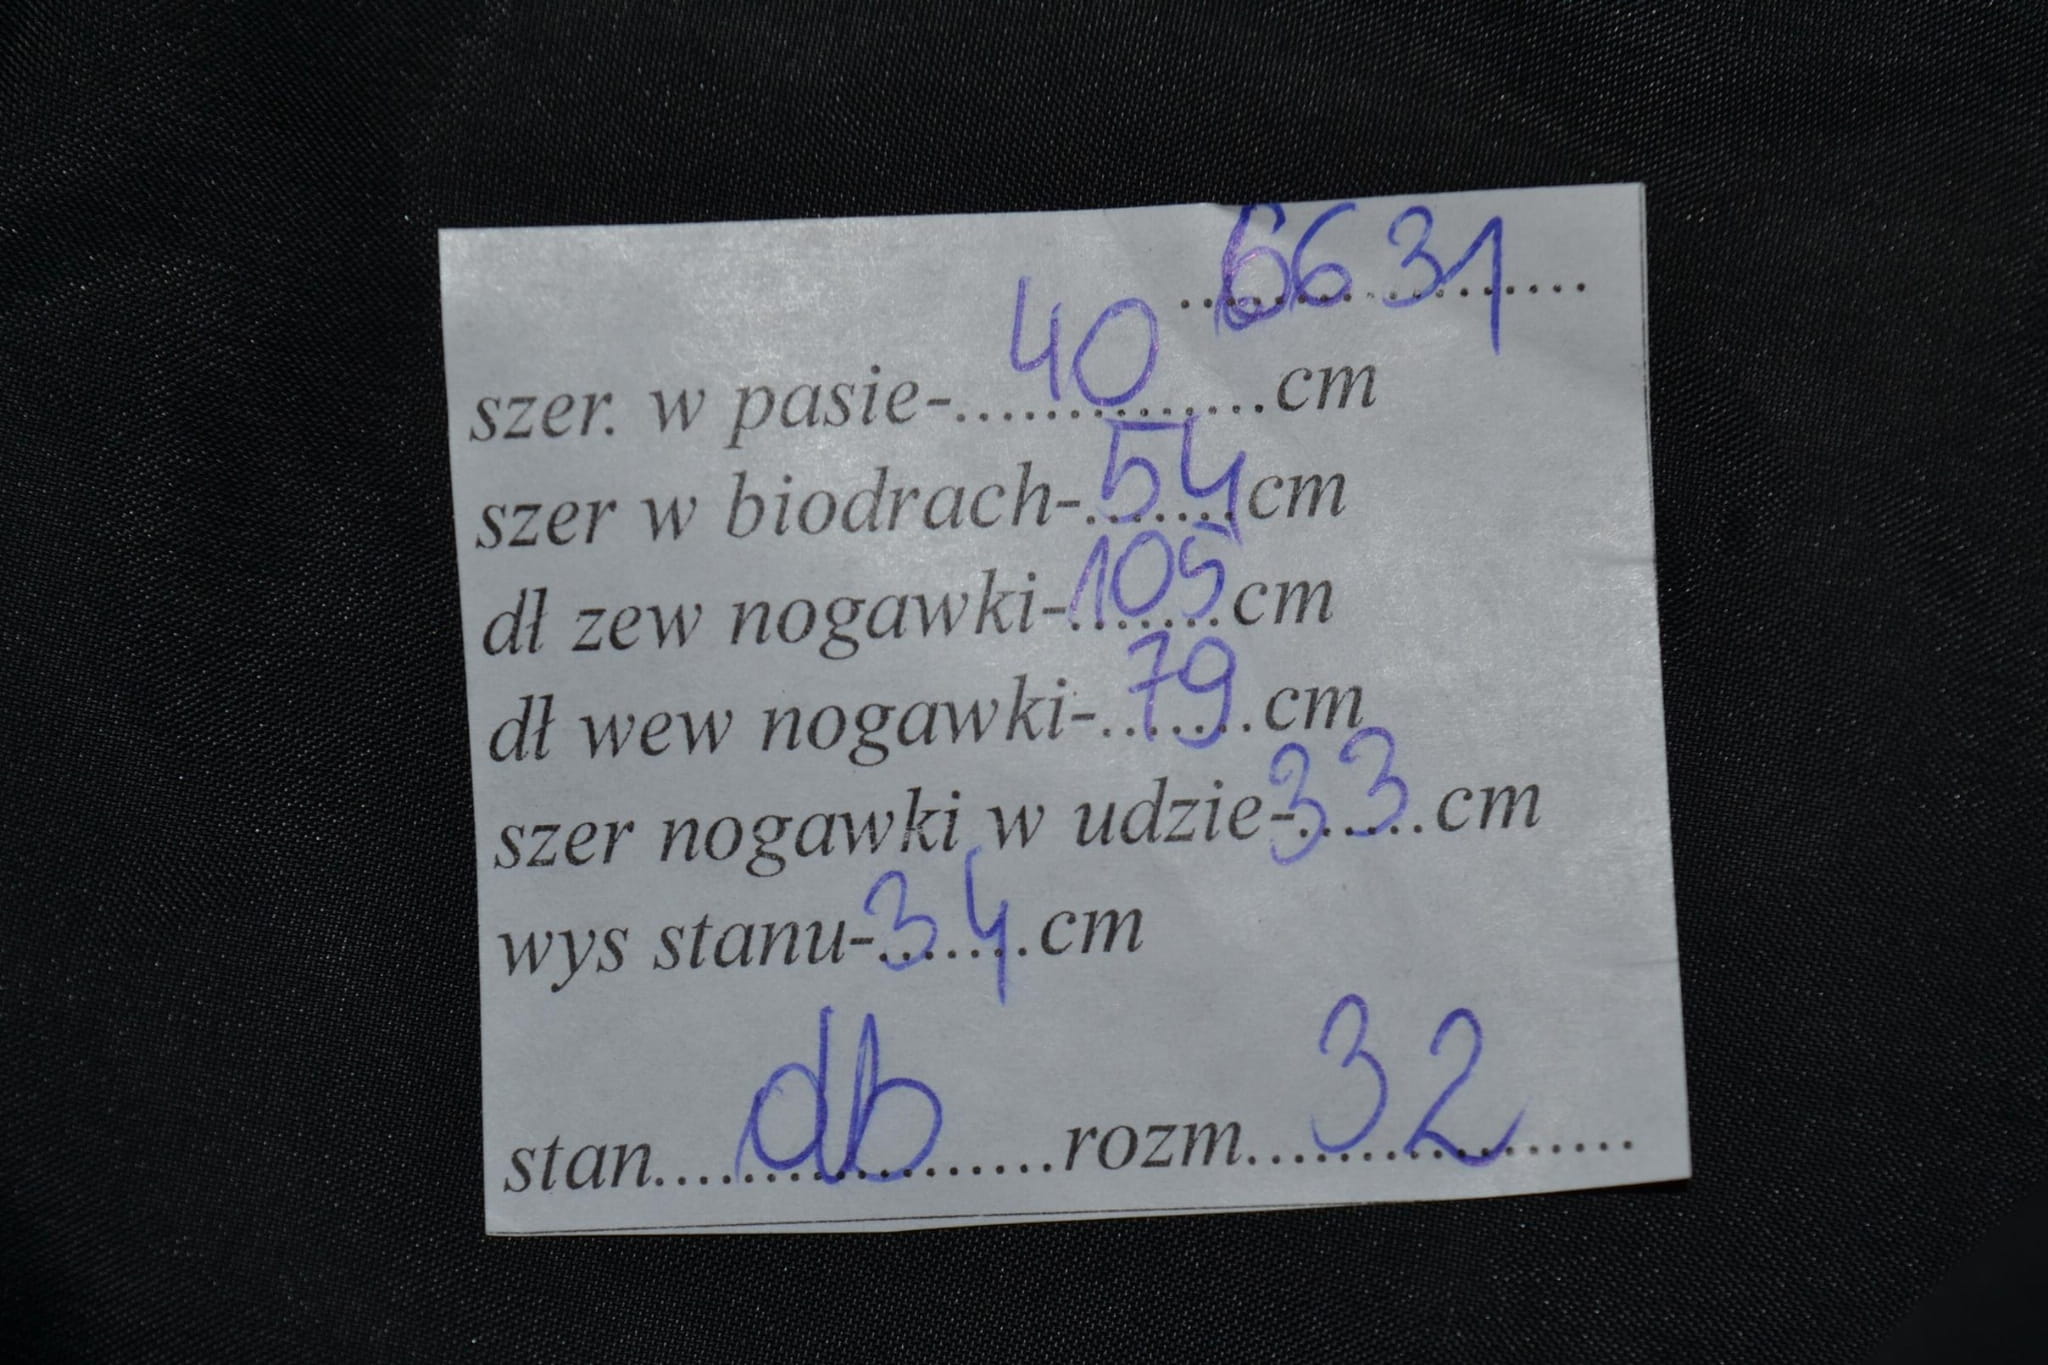 ..6631..........
szer. w pasie-...40...........cm
szer w biodrach-.54......cm
dł zew nogawki-105.......cm
dł wew nogawki-..79.....cm
szer nogawki w udzie-33......cm
wys stanu-34.......cm
stan......db............rozm.....32............